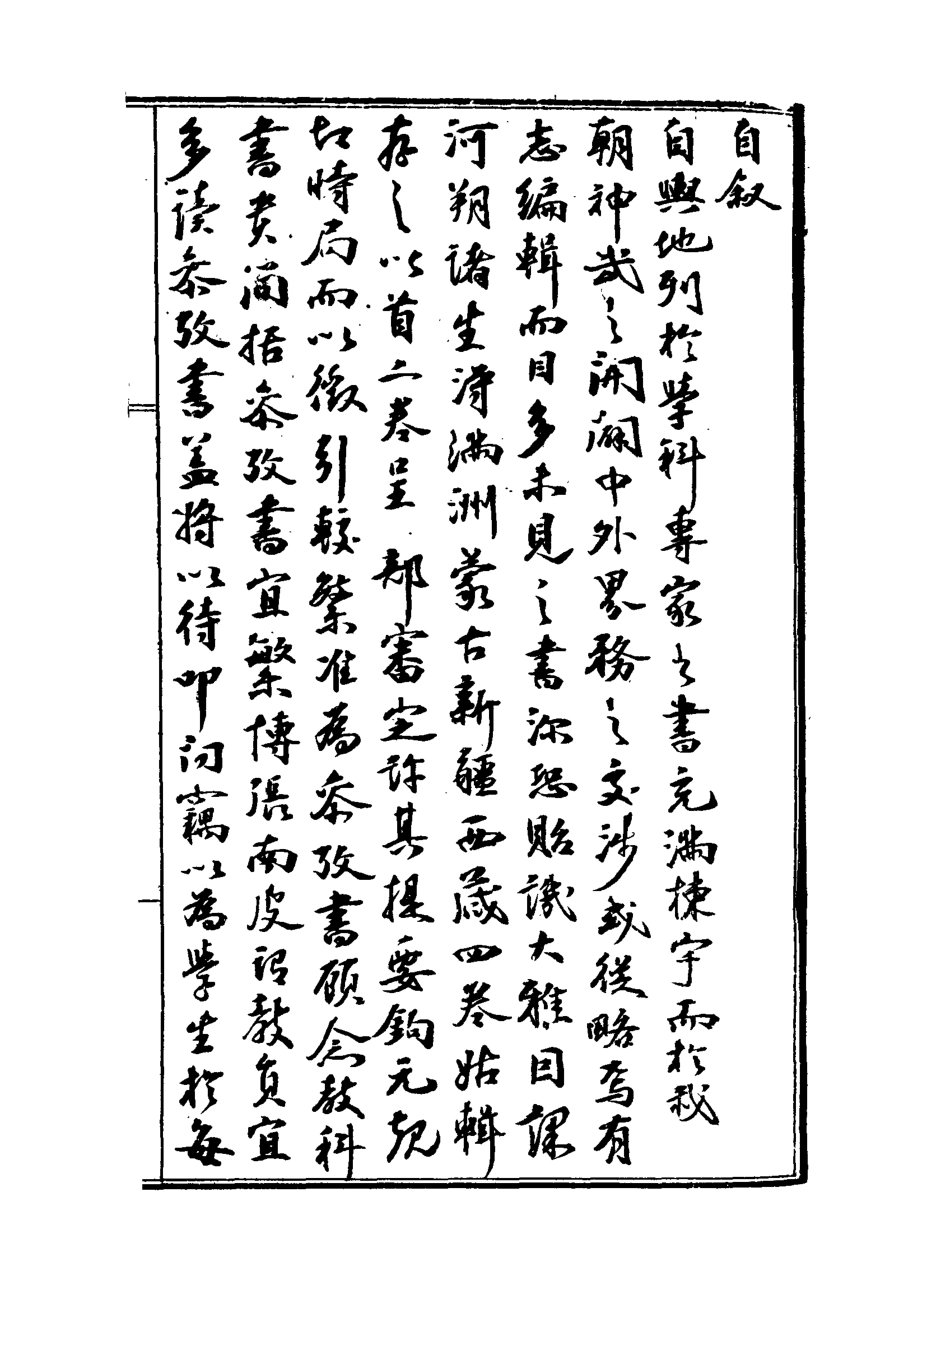 自叙
自輿地列於學科專家之書充滿棟宇而於我
朝神武之開闢中外界務之交涉或從略焉有
志編輯而目多未見之書深恐貽譏大雅因課
河朔諸生得滿洲蒙古新疆西藏四卷姑輯
存之以首二卷呈 部審定許其提要鉤元規
切時局而以徵引較繁准為參攷書顧念教科
書貴簡括參攷書宜繁博張南皮詔教員宜
多讀參攷書蓋將以待叩問竊以為學生於每